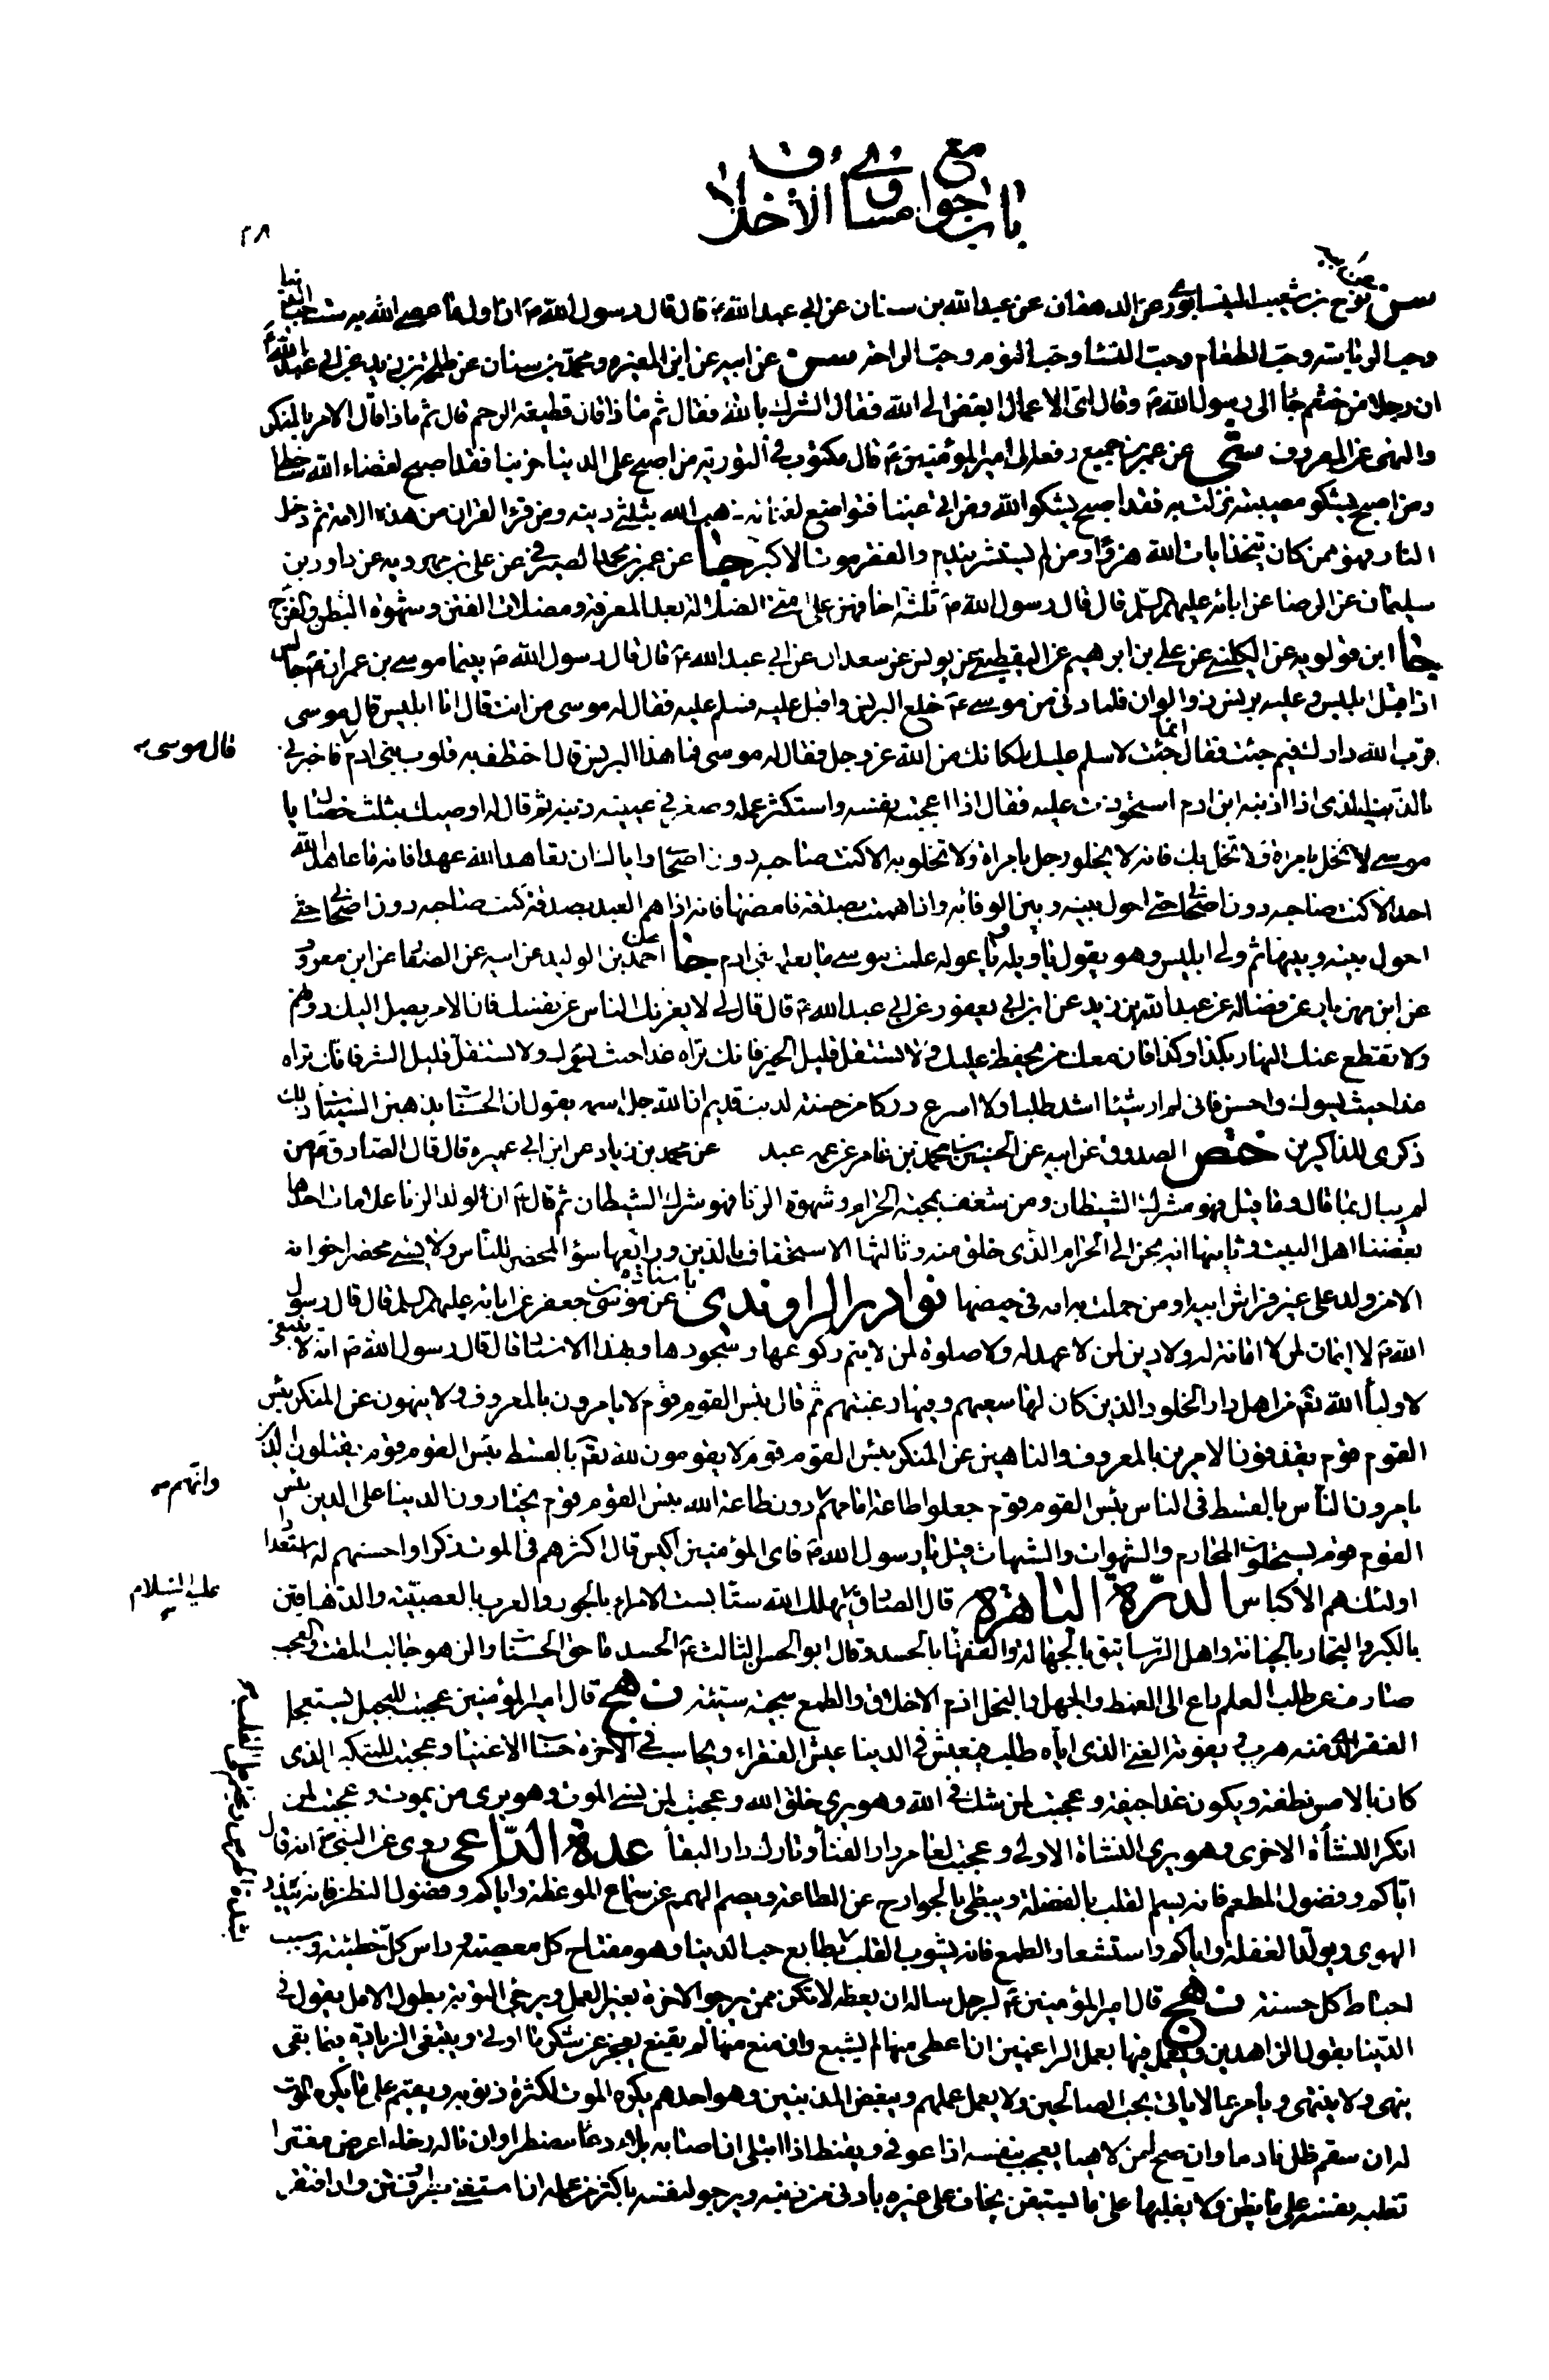 باب جوامع مساوي الأخلاق
٢٨
سن نوح بن شعيب النيسابوري عن الدهقان عن عبد الله بن سنان عن ابي عبد الله ع قال قال رسول الله ص ان اول ما عصي الله به ست حب الدنيا
وحب الرياسة وحب الطعام وحب النساء وحب النوم وحب الراحة سن عن ابيه عن ابن المغيرة ومحمد بن سنان عن طلحة بن زيد عن ابي عبد الله ع
ان رجلا من خثعم جاء الى رسول الله ص وقال اي الاعمال ابغض الى الله فقال الشرك بالله فقال ثم ماذا قال قطيعة الرحم قال ثم ماذا قال الامر بالمنكر
والنهي عن المعروف عن عمير بن جميع رفعه الى امير المؤمنين ع قال مكتوب في التورية من اصبح على الدنيا حزينا فقد اصبح لقضاء الله ساخطا
ومن اصبح يشكو مصيبة نزلت به فقد اصبح يشكو الله ومن اتى غنيا فتواضع لغنائه ذهب الله بثلثي دينه ومن قرأ القران من هذه الامة ثم دخل
النار فهو ممن كان يتخذ ايات الله هزوا ومن لم يستشر يندم والفقر موت الاكبر جا عن عمر بن محمد الصيرفي عن علي بن مهرويه عن داود بن
سليمان عن الرضا عن ابائه عليهم السلم قال قال رسول الله ص ثلثة اخافهن على امتي الضلالة بعد المعرفة ومضلات الفتن وشهوة البطن والفرج
جا ابن قولويه عن الكليني عن علي بن ابرهيم عن اليقطيني عن يونس عن سعدان عن ابي عبد الله ع قال قال رسول الله ص بينما موسى بن عمران ع جالس
اذ اقبل ابليس وعليه برنس ذو الوان فلما دنى من موسى ع خلع البرنس واقبل عليه فسلم عليه فقال له موسى من انت قال انا ابليس قال موسى
قرب الله دارك فيم جئت فقال انما جئت لاسلم عليك لمكانك من الله عز وجل فقال له موسى فما هذا البرنس قال اختطف به قلوب بني ادم فاخبرني
قال موسى
بالذنب الذي اذا اذنبه ابن ادم استحوذت عليه فقال اذا اعجبته نفسه واستكثر عمله وصغر في عينه ذنبه ثم قال له اوصيك بثلث خصال يا
موسى لا تخل بامراة ولا تخل بك فانه لا يخلو رجل بامراة ولا تخلو به الا كنت صاحبه دون اصحابي واياك ان تعاهد الله عهدا فانه ما عاهد الله
احد الا كنت صاحبه دون اصحابي حتى احول بينه وبين الوفاء به واذا هممت بصدقة فامضها فانه اذا هم العبد بصدقة كنت صاحبه دون اصحابي حتى
احول بينه وبينها ثم ولى ابليس وهو يقول يا ويله ويا عوله علمت موسى ما يعلمه بني ادم جا احمد بن الوليد عن ابيه عن الصفار عن ابن معروف
عن ابن مهزيار عن فضالة عن عبد الله بن زيد عن ابن ابي يعفور عن ابي عبد الله ع قال قال لي لا يغرنك الناس عن نفسك فان الامر يصل اليك دونهم
ولا تقطع عنك النهار بكذا وكذا فان معك من يحفظ عليك ولا تستقل قليل الخير فانك تراه غدا حيث يسرك ولا تستقل قليل الشر فانك تراه
غدا حيث يسوءك واحسن فاني لم ار شيئا اشد طلبا ولا اسرع دركا من حسنة لذنب قديم ان الله جل اسمه يقول ان الحسنات يذهبن السيئات ذلك
ذكرى للذاكرين ختص الصدوق عن ابيه عن الحسين بن محمد بن عامر عن عمه عبد عن محمد بن زياد عن ابن ابي عميرة قال قال الصادق ع من
لم يبال بما قال وما قيل فهو مشرك الشيطان ومن شغف بمحبة الحرام وشهوة الزنا فهو شرك الشيطان ثم قال ع ان لولد الزنا علامات احدها
بغضنا اهل البيت وثانيها انه يحن الى الحرام الذي خلق منه وثالثها الاستخفاف بالدين ورابعها سوء المحضر للناس ولا يسيء محضر اخوانه
الا من ولد على غير فراش ابيه او من حملت به امه في حيضها نوادر الراوندي باسناده عن موسى بن جعفر عن ابائه عليهم السلم قال قال رسول
الله ص لا ايمان لمن لا امانة له ولا دين لمن لا عهد له ولا صلوة لمن لا يتم ركوعها وسجودها وبهذا الاسناد قال قال رسول الله ص انه لا ينبغي
لاولياء الله تعالى من اهل دار الخلود الذين كان لها سعيهم وفيها رغبتهم ثم قال بئس القوم قوم لا يامرون بالمعروف ولا ينهون عن المنكر بئس
القوم قوم يقذفون الامرين بالمعروف والناهين عن المنكر بئس القوم قوم لا يقومون لله تعالى بالقسط بئس القوم قوم يقتلون الذين
يامرون الناس بالقسط في الناس بئس القوم قوم جعلوا طاعة امامهم دون طاعة الله بئس القوم قوم يختارون الدنيا على الدين بئس
القوم قوم يستحلون المحارم والشهوات والشبهات قيل يا رسول الله ص فاي المؤمنين اكيس قال اكثرهم في الموت ذكرا واحسنهم له استعدادا
اولئك هم الأكياس الدرة الباهرة قال الصادق يهلك الله ستا بست الامراء بالجور والعرب بالعصبية والدهاقين
عليه السلام
بالكبر والتجار بالخيانة واهل الرساتيق بالجهالة والفقهاء بالحسد وقال ابو الحسن الثالث ع الحسد ماحق الحسنات والزهو جالب المقت والعجب
صارف عن طلب العلم داع الى الغمط والجهل والبخل اذم الاخلاق والطمع سجية سيئة نهج قال امير المؤمنين عجبت للبخيل يستعجل
الفقر الذي منه هرب ويفوته الغنى الذي اياه طلب فيعيش في الدنيا عيش الفقراء ويحاسب في الاخرة حساب الاغنياء وعجبت للمتكبر الذي
كان بالامس نطفة ويكون غدا جيفة وعجبت لمن شك في الله وهو يرى خلق الله وعجبت لمن نسي الموت وهو يرى من يموت وعجبت لمن
انكر النشأة الاخرى وهو يرى النشاة الاولى وعجبت لعامر دار الفناء وتارك دار البقاء عدة الداعي روي عن النبي ص انه قال
اياكم وفضول المطعم فانه يسم القلب بالفضلة ويبطئ بالجوارح عن الطاعة ويصم الهمم عن سماع الموعظة واياكم وفضول النظر فانه يبذر
الهوى ويولد الغفلة واياكم واستشعار الطمع فانه يشوب القلب بطابع حب الدنيا وهو مفتاح كل معصية وراس كل خطيئة وسبب
احباط كل حسنة نهج قال امير المؤمنين ع لرجل ساله ان يعظه لا تكن ممن يرجو الاخرة بغير العمل ويرجي التوبة بطول الامل يقول في
الدنيا بقول الزاهدين ويعمل فيها بعمل الراغبين ان اعطي منها لم يشبع وان منع منها لم يقنع يعجز عن شكر ما اوتي ويبتغي الزيادة فيما بقي
ينهى ولا ينتهي ويأمر بما لا يأتي يحب الصالحين ولا يعمل عملهم ويبغض المذنبين وهو احدهم يكره الموت لكثرة ذنوبه ويقيم على ما يكره الموت
له ان سقم ظل نادما وان صح امن لاهيا يعجب بنفسه اذا عوفي ويقنط اذا ابتلي ان اصابه بلاء دعا مضطرا وان ناله رخاء اعرض مغترا
تغلبه نفسه على ما يظن ولا يغلبها على ما يستيقن يخاف على غيره بادنى من ذنبه ويرجو لنفسه باكثر من عمله ان استغنى بطر وفتن وان افتقر